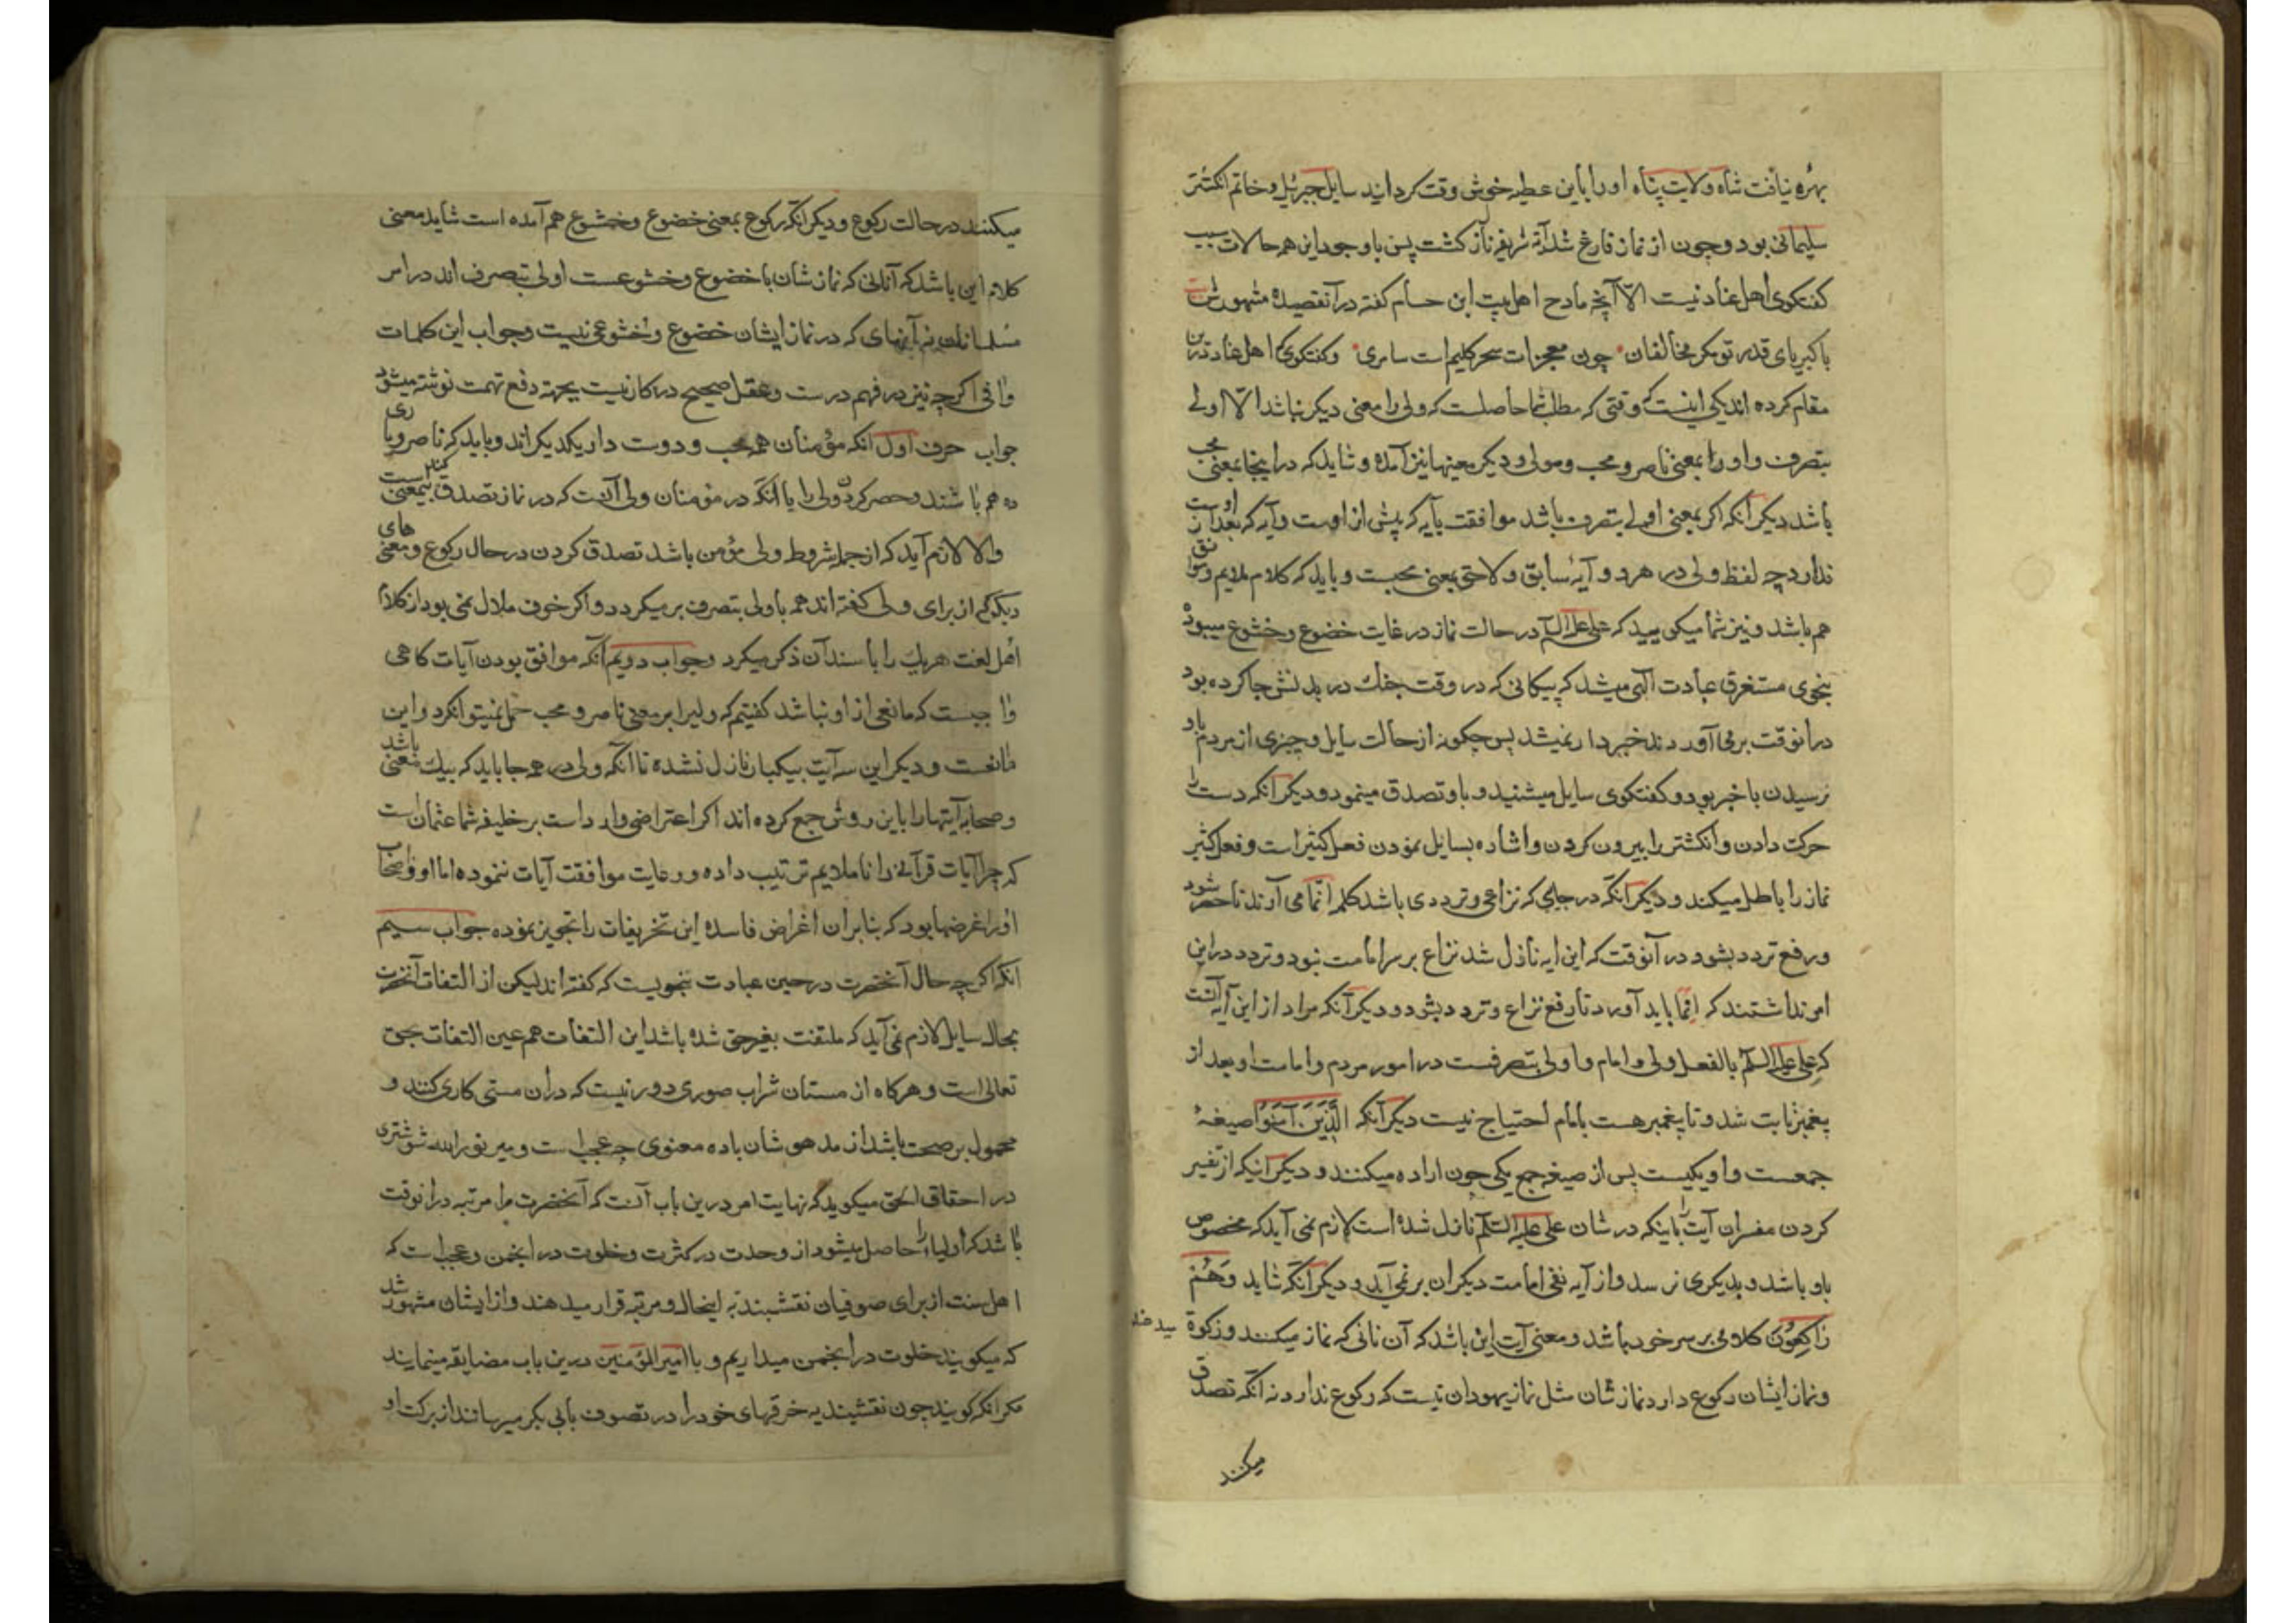 بهره نیافت شاه ولایت پناه او را باین عطیه خوش وقت کردانید سایل جبرئیل و خاتم انکشتر
سلیمانی بود و چون از نماز فارغ شد آیه شریفه نازل کشت پس باوجود این همه حالات سبب
کفتکوی اهل عناد نیست الا آنچه مادح اهل بیت ابن حسام کفته در آنقصیدهٔ مشهورش
با کبریای قدر تو مکر مخالفان چون معجزات سحر کلیم است سامری وکفتکوی اهل عناد درین
مقام کرده اند یکی اینست که وقتی که مطلب شما حاصلست که ولی را معنی دیکر نباشد الا اولی
بتصرف و او را بمعنی ناصر و محب و مولی و دیکر معنیها نیز آمده و شاید که در اینجا بمعنی محب
باشد دیکر آنکه اکر بمعنی اولی بتصرف باشد موافقت بآیه که پیش از اوست و آیه که بعد از اوست
ندارد چه لفظ ولی در هر دو آیهٔ سابق و لاحق بمعنی محبست و باید که کلام ملایم و موافق
هم باشد و نیز شما میکویید که علی علیه السلام در حالت نماز در غایت خضوع و خشوع میبود
بنحوی مستغرق عبادت الهی میشد که پیکانی که در وقت جنک در بدنش جا کرده بود
در انوقت بر می آوردند خبردار نمیشد پس چکونه از حالت سایل و چیزی از مردم باو
نرسیدن با خبر بود و کفتکوی سایل میشنید و باو تصدق مینمود و دیکر آنکه دست را
حرکت دادن و انکشتر را بیرون کردن و اشاره بسایل نمودن فعل کثیر است و فعل کثیر
نماز را باطل میکند و دیکر آنکه در جایی که نزاعی و ترددی باشد کلمه انّما می آورند تا حصر شود
و رفع تردد بشود در آنوقت که این ایه نازل شد نزاع بر سر امامت نبود و تردد در این
امر نداشتند که انّما باید آورد تا رفع نزاع و تردد بشود و دیکر آنکه مراد از این آیه آنست
که علی علیه السلام بالفعل ولی و امام و اولی بتصرفست در امور مردم و امامت او بعد از
پغمبر ثابت شد و تا پغمبر هست بامام احتیاج نیست دیکر آنکه الَّذِینَ آمَنُوا صیغهٔ
جمعست و او یکیست پس از صیغه جمع یکی چون اراده میکنند و دیکر اینکه از تفسیر
کردن مفسران آیت را باینکه در شان علی علیه السلام نازل شده است لازم نمی آید که مخصوص
باو باشد و بدیکری نرسد و از آیه نفی امامت دیکران بر نمی آید و دیکر آنکه شاید وَهُمْ
رَاکِعُونَ کلامی بر سر خود باشد و معنی آیت این باشد که آن نانی که نماز میکنند و زکوة میدهند
و نماز ایشان رکوع دارد نمازشان مثل نماز یهودان نیست که رکوع ندارد نه آنکه تصدق
میکنند
میکنند در حالت رکوع و دیکر آنکه رکوع بمعنی خضوع و خشوع هم آمده است شاید معنی
کلام این باشد که آنانی که نمازشان با خضوع و خشوعست اولی بتصرف اند در امر
مسلمانان نه آنهای که در نماز ایشان خضوع و خشوعی نیست و جواب این کلمات
وافی اکر چه نیز در فهم درست و عقل صحیح در کار نیست بجهة دفع تهمت نوشته میشود
جواب حرف اول آنکه مؤمنان همه محب و دوست دار یکدیکر اند و باید که ناصر و یاری
ده هم باشند و حصر کردن ولی را با آنکه در مؤمنان ولی آنست که در نماز تصدق کند بیمعنی ست
و الا لازم آید که از جمله شروط ولی مؤمن باشد تصدق کردن در حال رکوع و معنی های
دیکر که از برای ولی کفته اند همه باولی بتصرف بر میکردد و اکر خوف ملال نمی بود از کلام
اهل لغت هر یک را با سند آن ذکر میکرد و جواب دویم آنکه موافق بودن آیات کاهی
واجبست که مانعی از او نباشد کفتیم که ولی را بر معنی ناصر و محب حمل نمیتوان کرد و این
مانعست و دیکر این سه آیت بیکبار نازل نشده تا آنکه ولی در همه جا باید که بیک معنی باشد
و صحابه آیتها را باین روش جمع کرده اند اکر اعتراضی وارد است بر خلیفه شما عثمان است
که چرا آیات قرآنی را ناملایم ترتیب داده و رعایت موافقت آیات ننموده اما او و اصحاب
او را غرضها بود که بنابر ان اغراض فاسده این تحریفات را تجویز نموده جواب سیم
آنکه اکر چه حال آنحضرت در حین عبادت بنحویست که کفته اند لیکن از التفات آنحضرت
بحال سایل لازم نمی آید که ملتفت بغیر حق شده باشد این التفات هم عین التفات بحق
تعالی است و هرکاه از مستان شراب صوری دور نیست که در ان مستی کاری کنند و
محمول بر صحت باشد از مدهوشان باده معنوی چه عجب است و میر نورالله شوشتری
در احقاق الحق میکوید که نهایت امر درین باب آنست که آنحضرت را مرتبه در انوقت
باشد که اولیاء را حاصل میشود از وحدت در کثرت و خلوت در انجمن و عجب است که
اهل سنت از برای صوفیان نقشبندیه اینحال و مرتبه قرار میدهند و از ایشان مشهور شد
که میکویند خلوت در انجمن میداریم و با امیر المؤمنین درین باب مضایقه مینمایند
مکر آنکه کویند چون نقشبندیه خرقهای خود را در تصوف بابی بکر میرسانند از برکت او